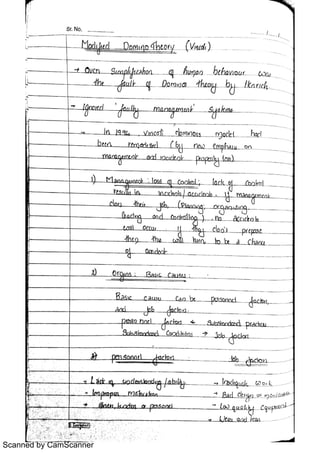 Sr. No.
Modified Domino theory (Vincoli)
→ Over Simplification of human behaviour was
the fault of Domino theory by Henrich
- Ignored faulty management System
- In 1994 Vincoli dominos model had
been remodelled (by new emphasis on
management and incident property loss)
1) Management: loss of Control; lack of Control
results in incidents/accidents. If management
does their job (Planning, organising,
leading and controlling), no accidents
will occur. If they don't prepare
then the will be a chance
of accident
2) Origins: Basic Causes:
Basic causes can be personal factor,
and job factors
personal factors & Substandard practices
Substandard Conditions → Job factors
personal factor Job factors
- Lack of understanding/ability - Inadequate work
- Improper motivation - Bad design or
- personal - Low quality equipment
- Wear and tear
Scanned by CamScanner